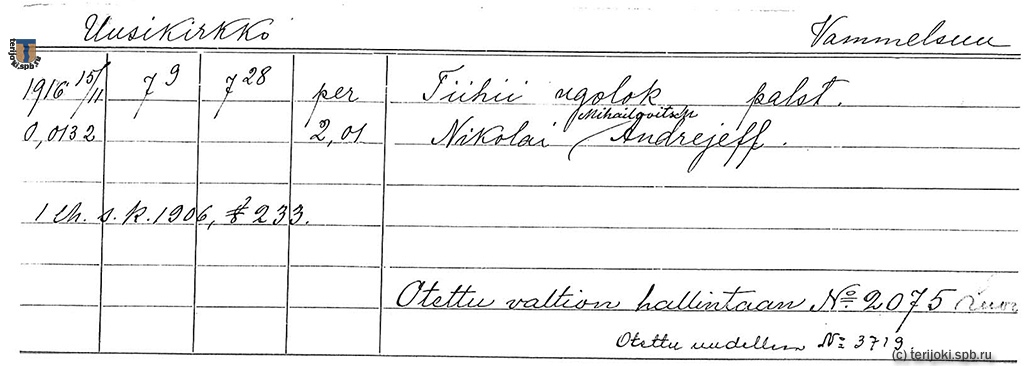 Uusikirkko Vammelsuu
terijoki.spb.ru
1916 15/11 7 9 7 28 per Tiihii ugolok palst.
Mihailovitsch
0,0132 2,01 Nikolai Andrejeff.
1 lh. s. k. 1906, § 233.
Otettu valtion hallintaan No: 2075
Otettu uudelleen No: 3719
(c) terijoki.spb.ru